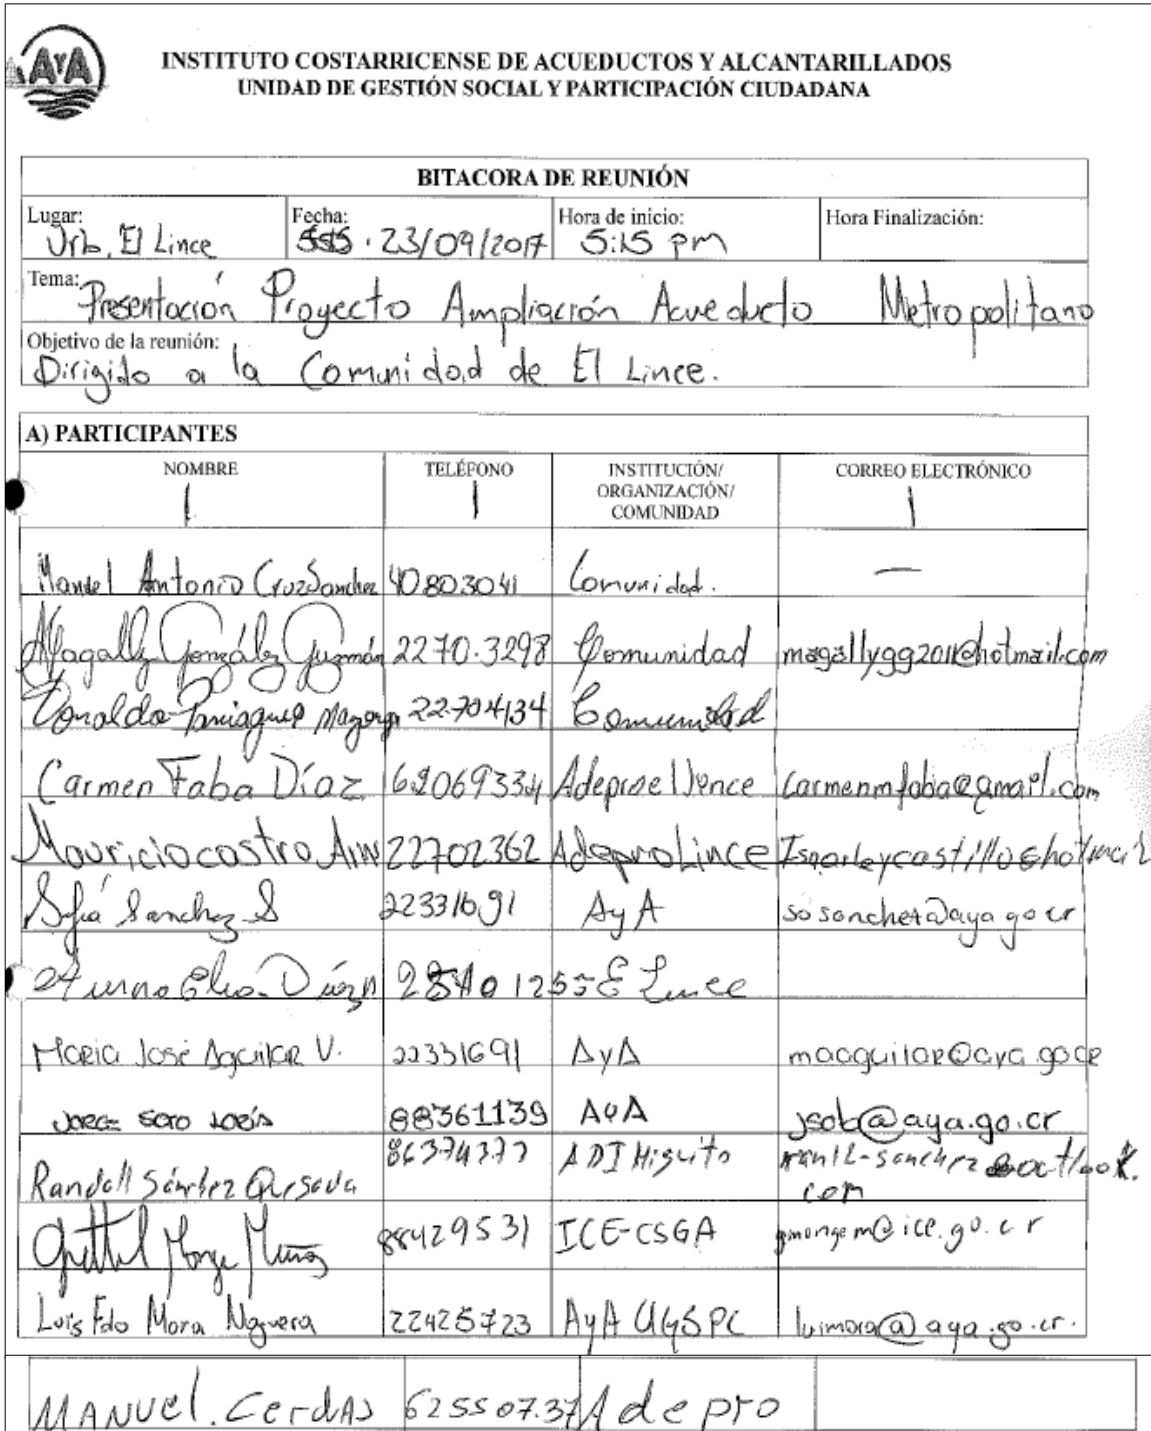 AyA
INSTITUTO COSTARRICENSE DE ACUEDUCTOS Y ALCANTARILLADOS
UNIDAD DE GESTIÓN SOCIAL Y PARTICIPACIÓN CIUDADANA
BITACORA DE REUNIÓN
Lugar: Urb. El Lince Fecha: 23/09/2017 Hora de inicio: 5:15 pm Hora Finalización:
Tema: Presentación Proyecto Ampliación Acueducto Metropolitano
Objetivo de la reunión:
Dirigido a la Comunidad de El Lince.
A) PARTICIPANTES
NOMBRE TELÉFONO INSTITUCIÓN/ ORGANIZACIÓN/ COMUNIDAD CORREO ELECTRÓNICO
Manuel Antonio Cruz Sanchez 40803041 Comunidad. —
Magally González Guzmán 2270.3298 Comunidad magallygg2011@hotmail.com
22704134 Comunidad
Carmen Faba Díaz 62069334 carmenmfaba@gmail.com
Mauricio castro 22702362 AdeproLince
Sofía Sanchez S 22331691 AyA
Lince
Maria José Aguilar V. 22331691 AyA maaguilar@aya.go.cr
JORGE SOTO 88361139 AyA jsob@aya.go.cr
Randall Sánchez Quesada ADI Higuito
com
Grettel Monge Muñoz 88429531 ICE-CSGA gmongem@ice.go.cr
Luis Fdo Mora Noguera 22425723 AyA UGSPC luimora@aya.go.cr.
MANUEL. CerdAs 625507.37 Adepro